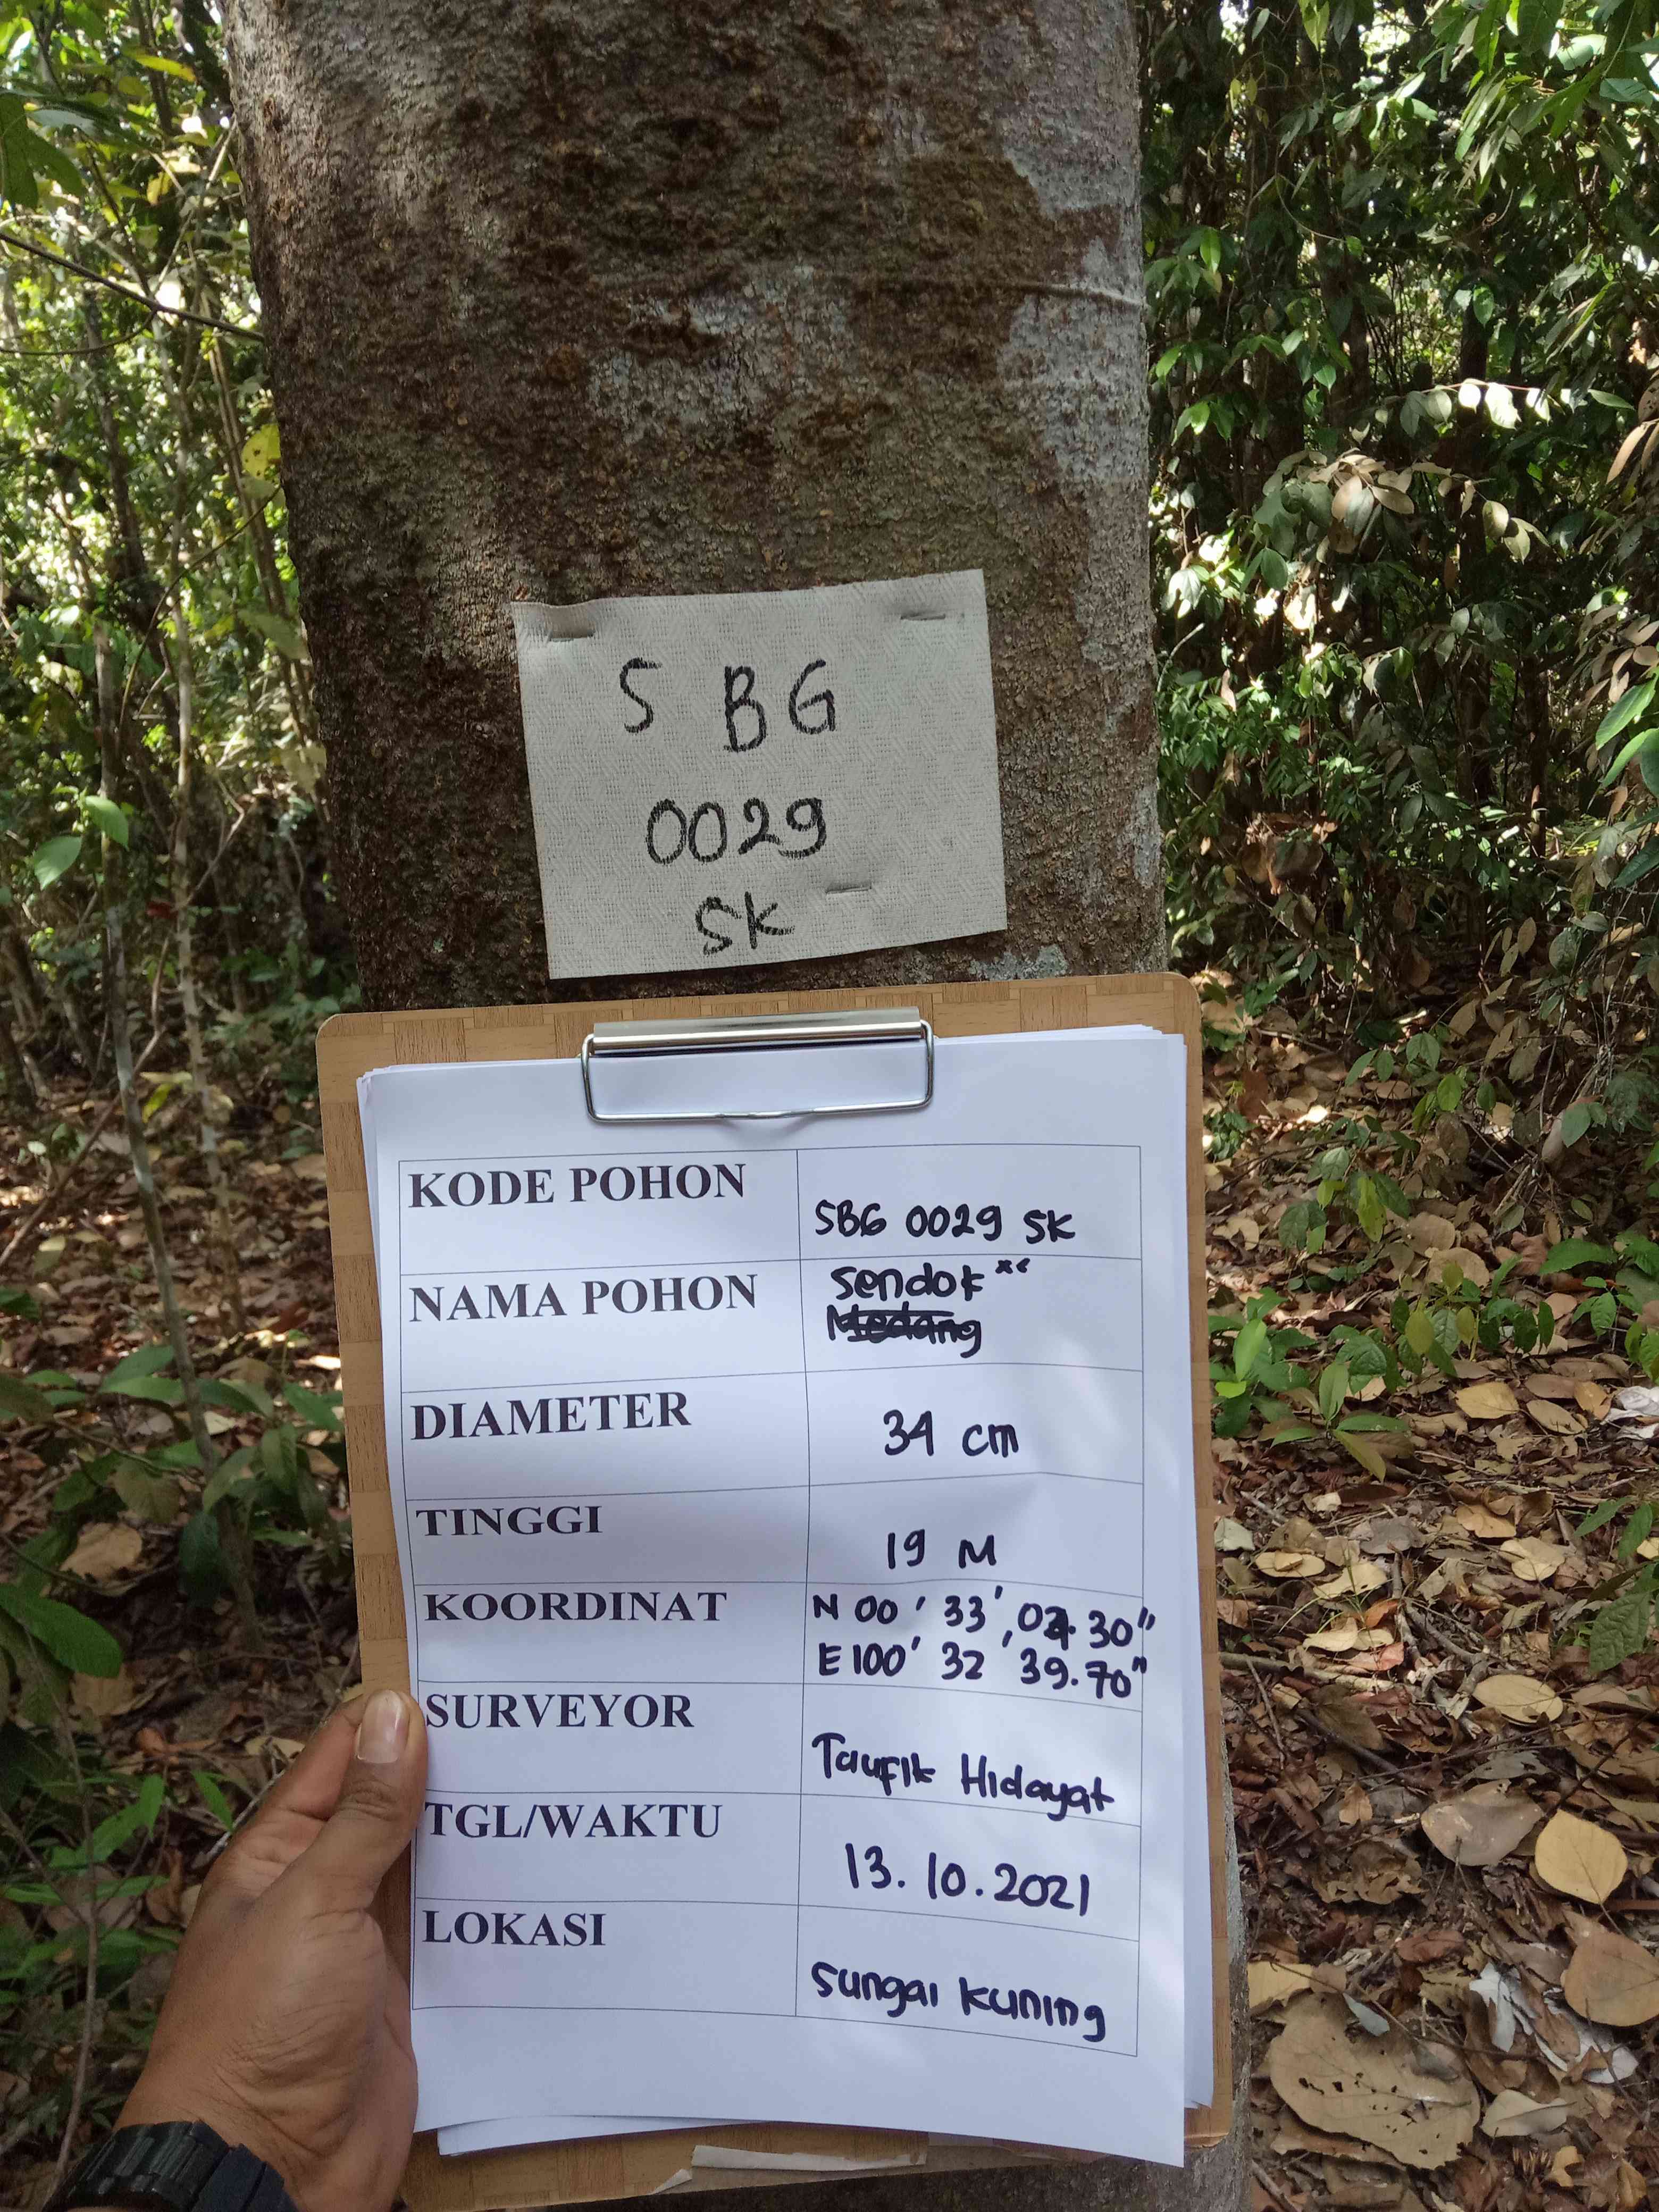 S BG
0029
SK
KODE POHON
SBG 0029 SK
NAMA POHON
Sendok
Medang
DIAMETER
34 cm
TINGGI
19 M
KOORDINAT
N 00 ' 33 ', 30"
E 100' 32 ' 39.70"
SURVEYOR
Taufik Hidayat
TGL/WAKTU
13.10.2021
LOKASI
Sungai Kuning